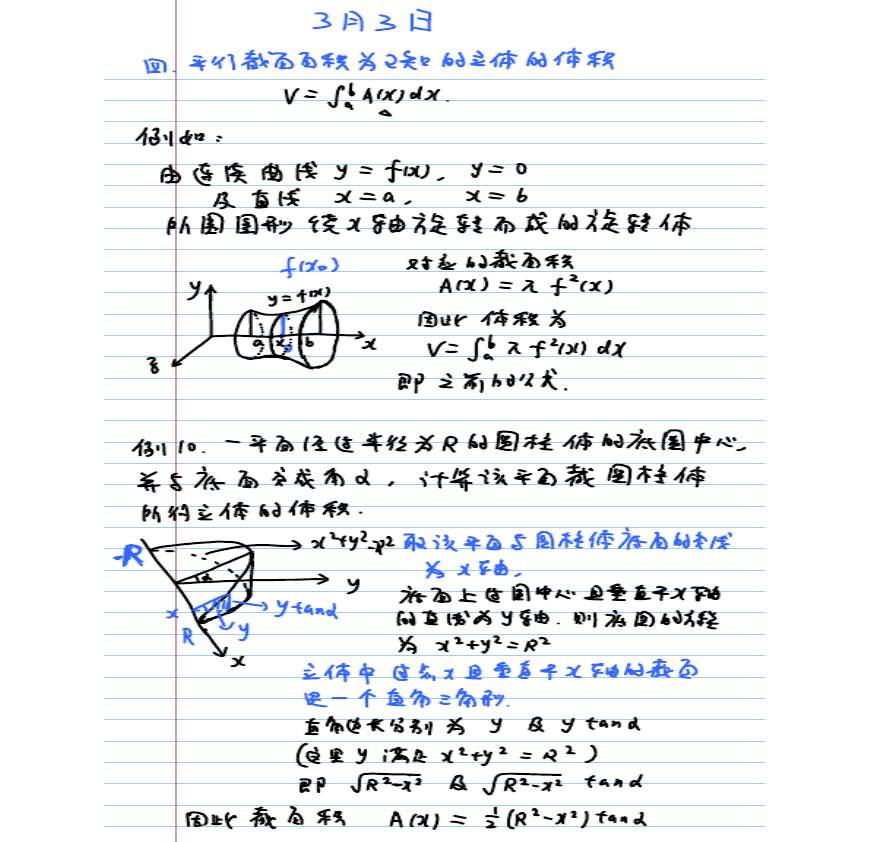 3月3日
四. 平行截面面积为已知的立体的体积
V = ∫ₐᵇ A(x) dx.
例如:
由连续曲线 y = f(x), y = 0
及直线 x = a, x = b
所围图形绕x轴旋转而成的旋转体
f(x₀)
对应的截面积
y
y = f(x)
A(x) = π f²(x)
因此体积为
a x b x
V = ∫ₐᵇ π f²(x) dx
z
即之前的公式.
例10. 一平面经过半径为R的圆柱体的底圆中心,
并与底面交成角α, 计算该平面截圆柱体
所得立体的体积.
-R
x²+y²=R²
取该平面与圆柱体底面的交线
为x轴,
α
y
底面上过圆中心且垂直于x轴
x
y tanα
的直线为y轴. 则底圆的方程
R
y
为 x²+y²=R²
x
立体中过点x且垂直于x轴的截面
是一个直角三角形.
直角边长分别为 y 及 y tanα
(这里 y 满足 x²+y² = R²)
即 √(R²-x²) 及 √(R²-x²) tanα
因此截面积 A(x) = ½(R²-x²)tanα